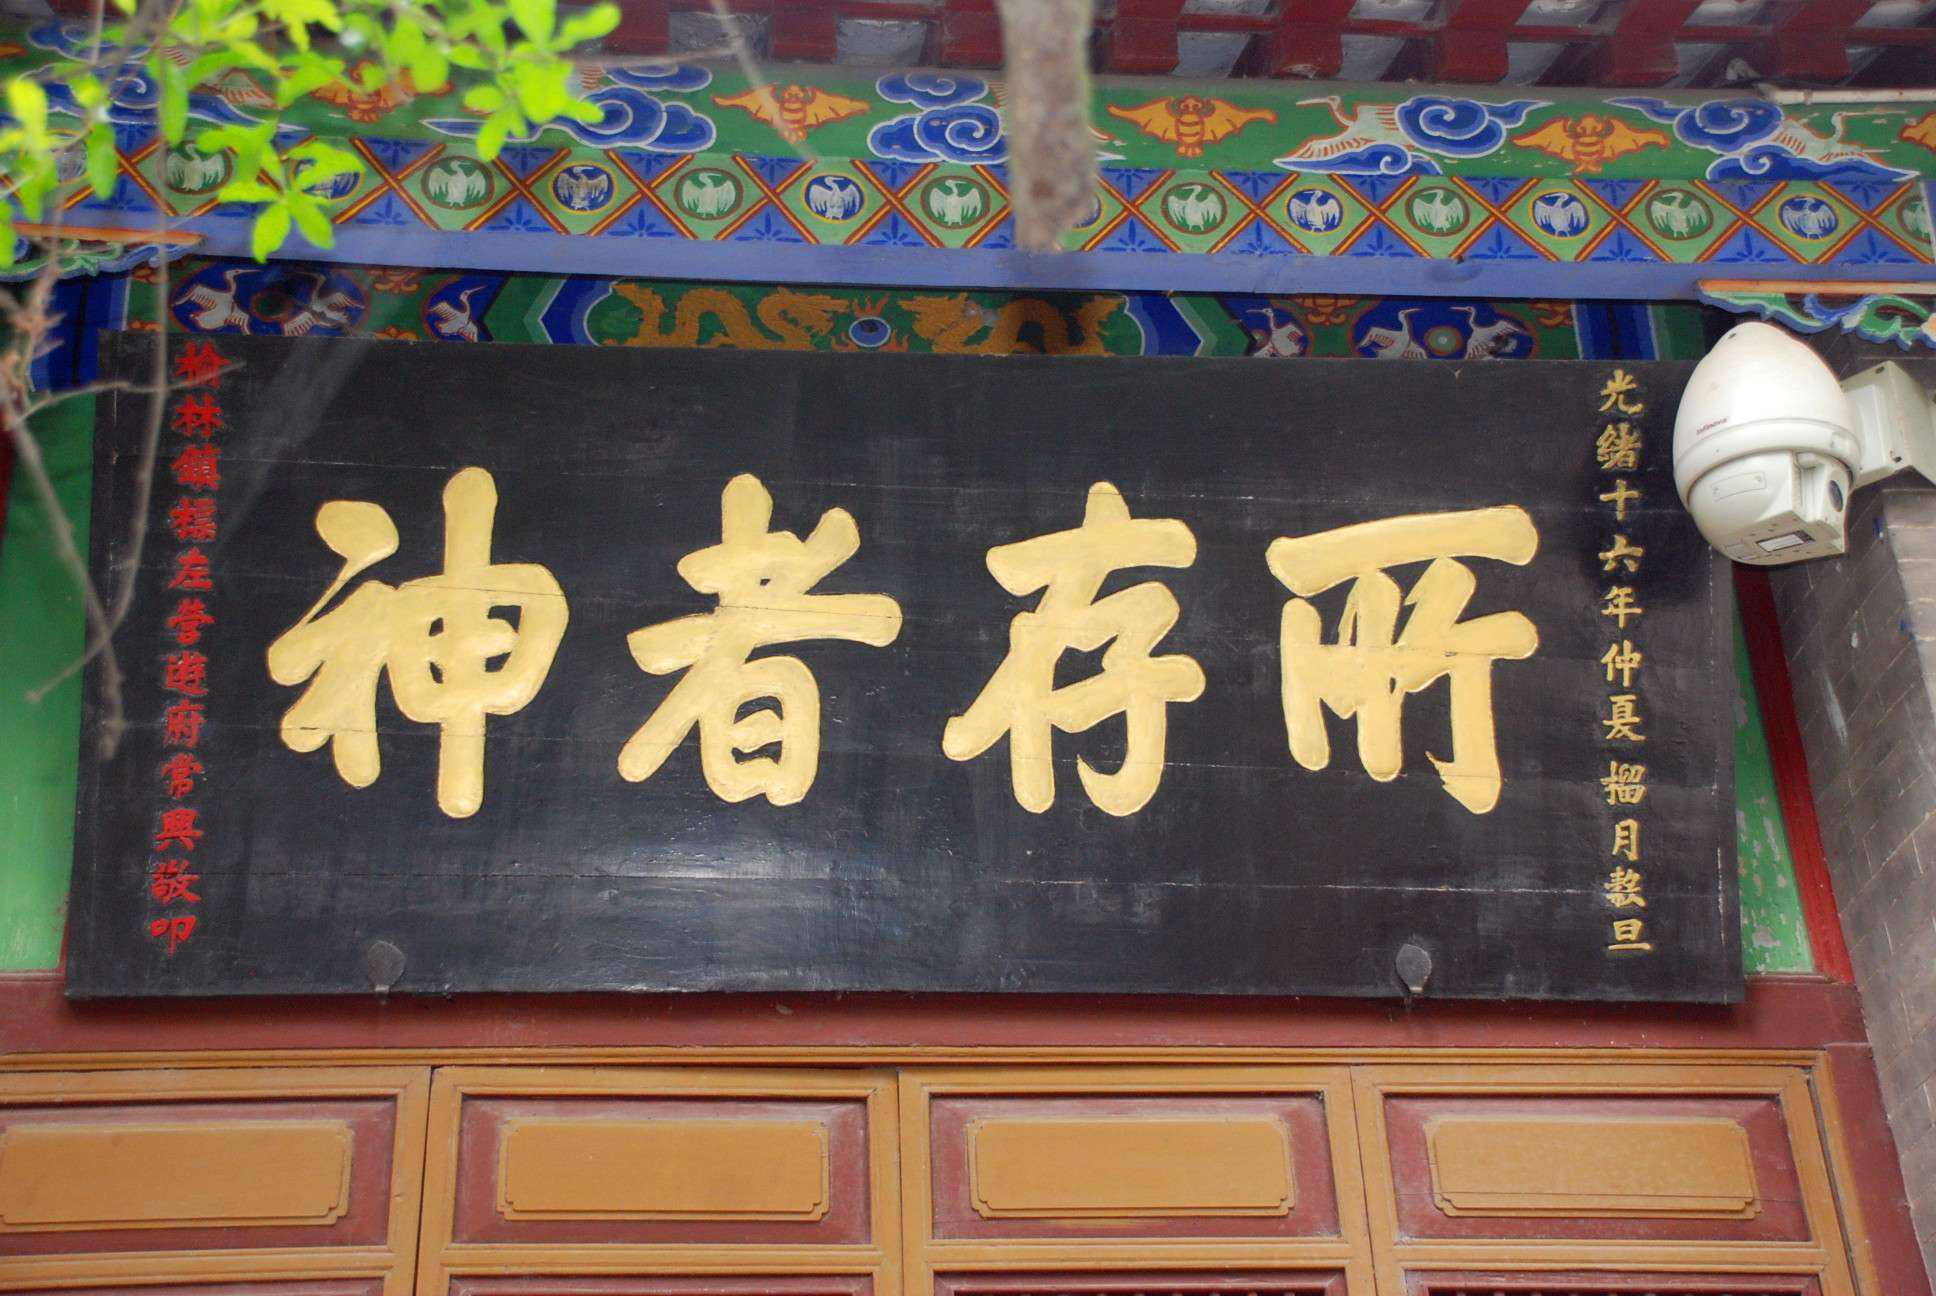 光緒十六年仲夏榴月穀旦
所存者神
榆林鎮標左營遊府常興敬叩